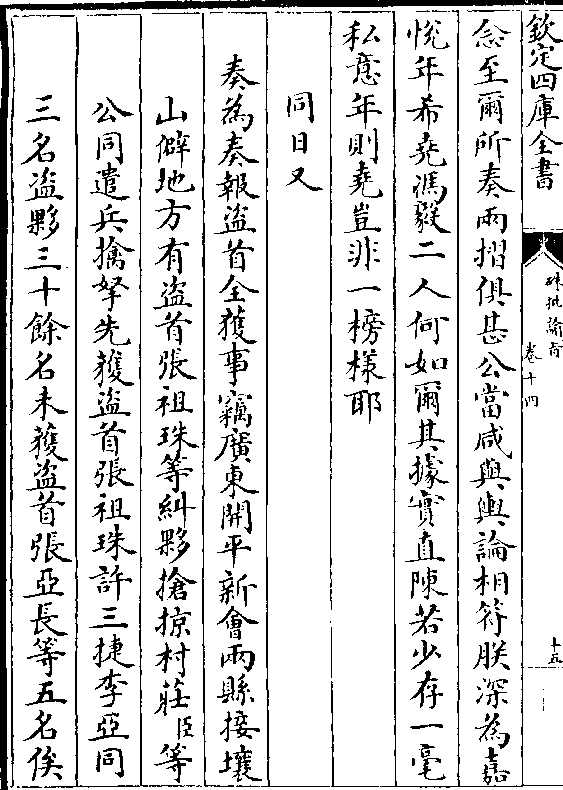 欽定四庫全書
硃批諭旨
卷十四
十五
念至爾所奏兩摺俱甚公當咸與輿論相符朕深為嘉
悅年希堯馮毅二人何如爾其據實直陳若少存一毫
私意年則堯豈非一榜樣耶
同日又
奏為奏報盜首全獲事竊廣東開平新會兩縣接壤
山僻地方有盜首張祖珠等糾夥搶掠村莊臣等
公同遣兵擒拏先獲盜首張祖珠許三捷李亞同
三名盜夥三十餘名未獲盜首張亞長等五名俟